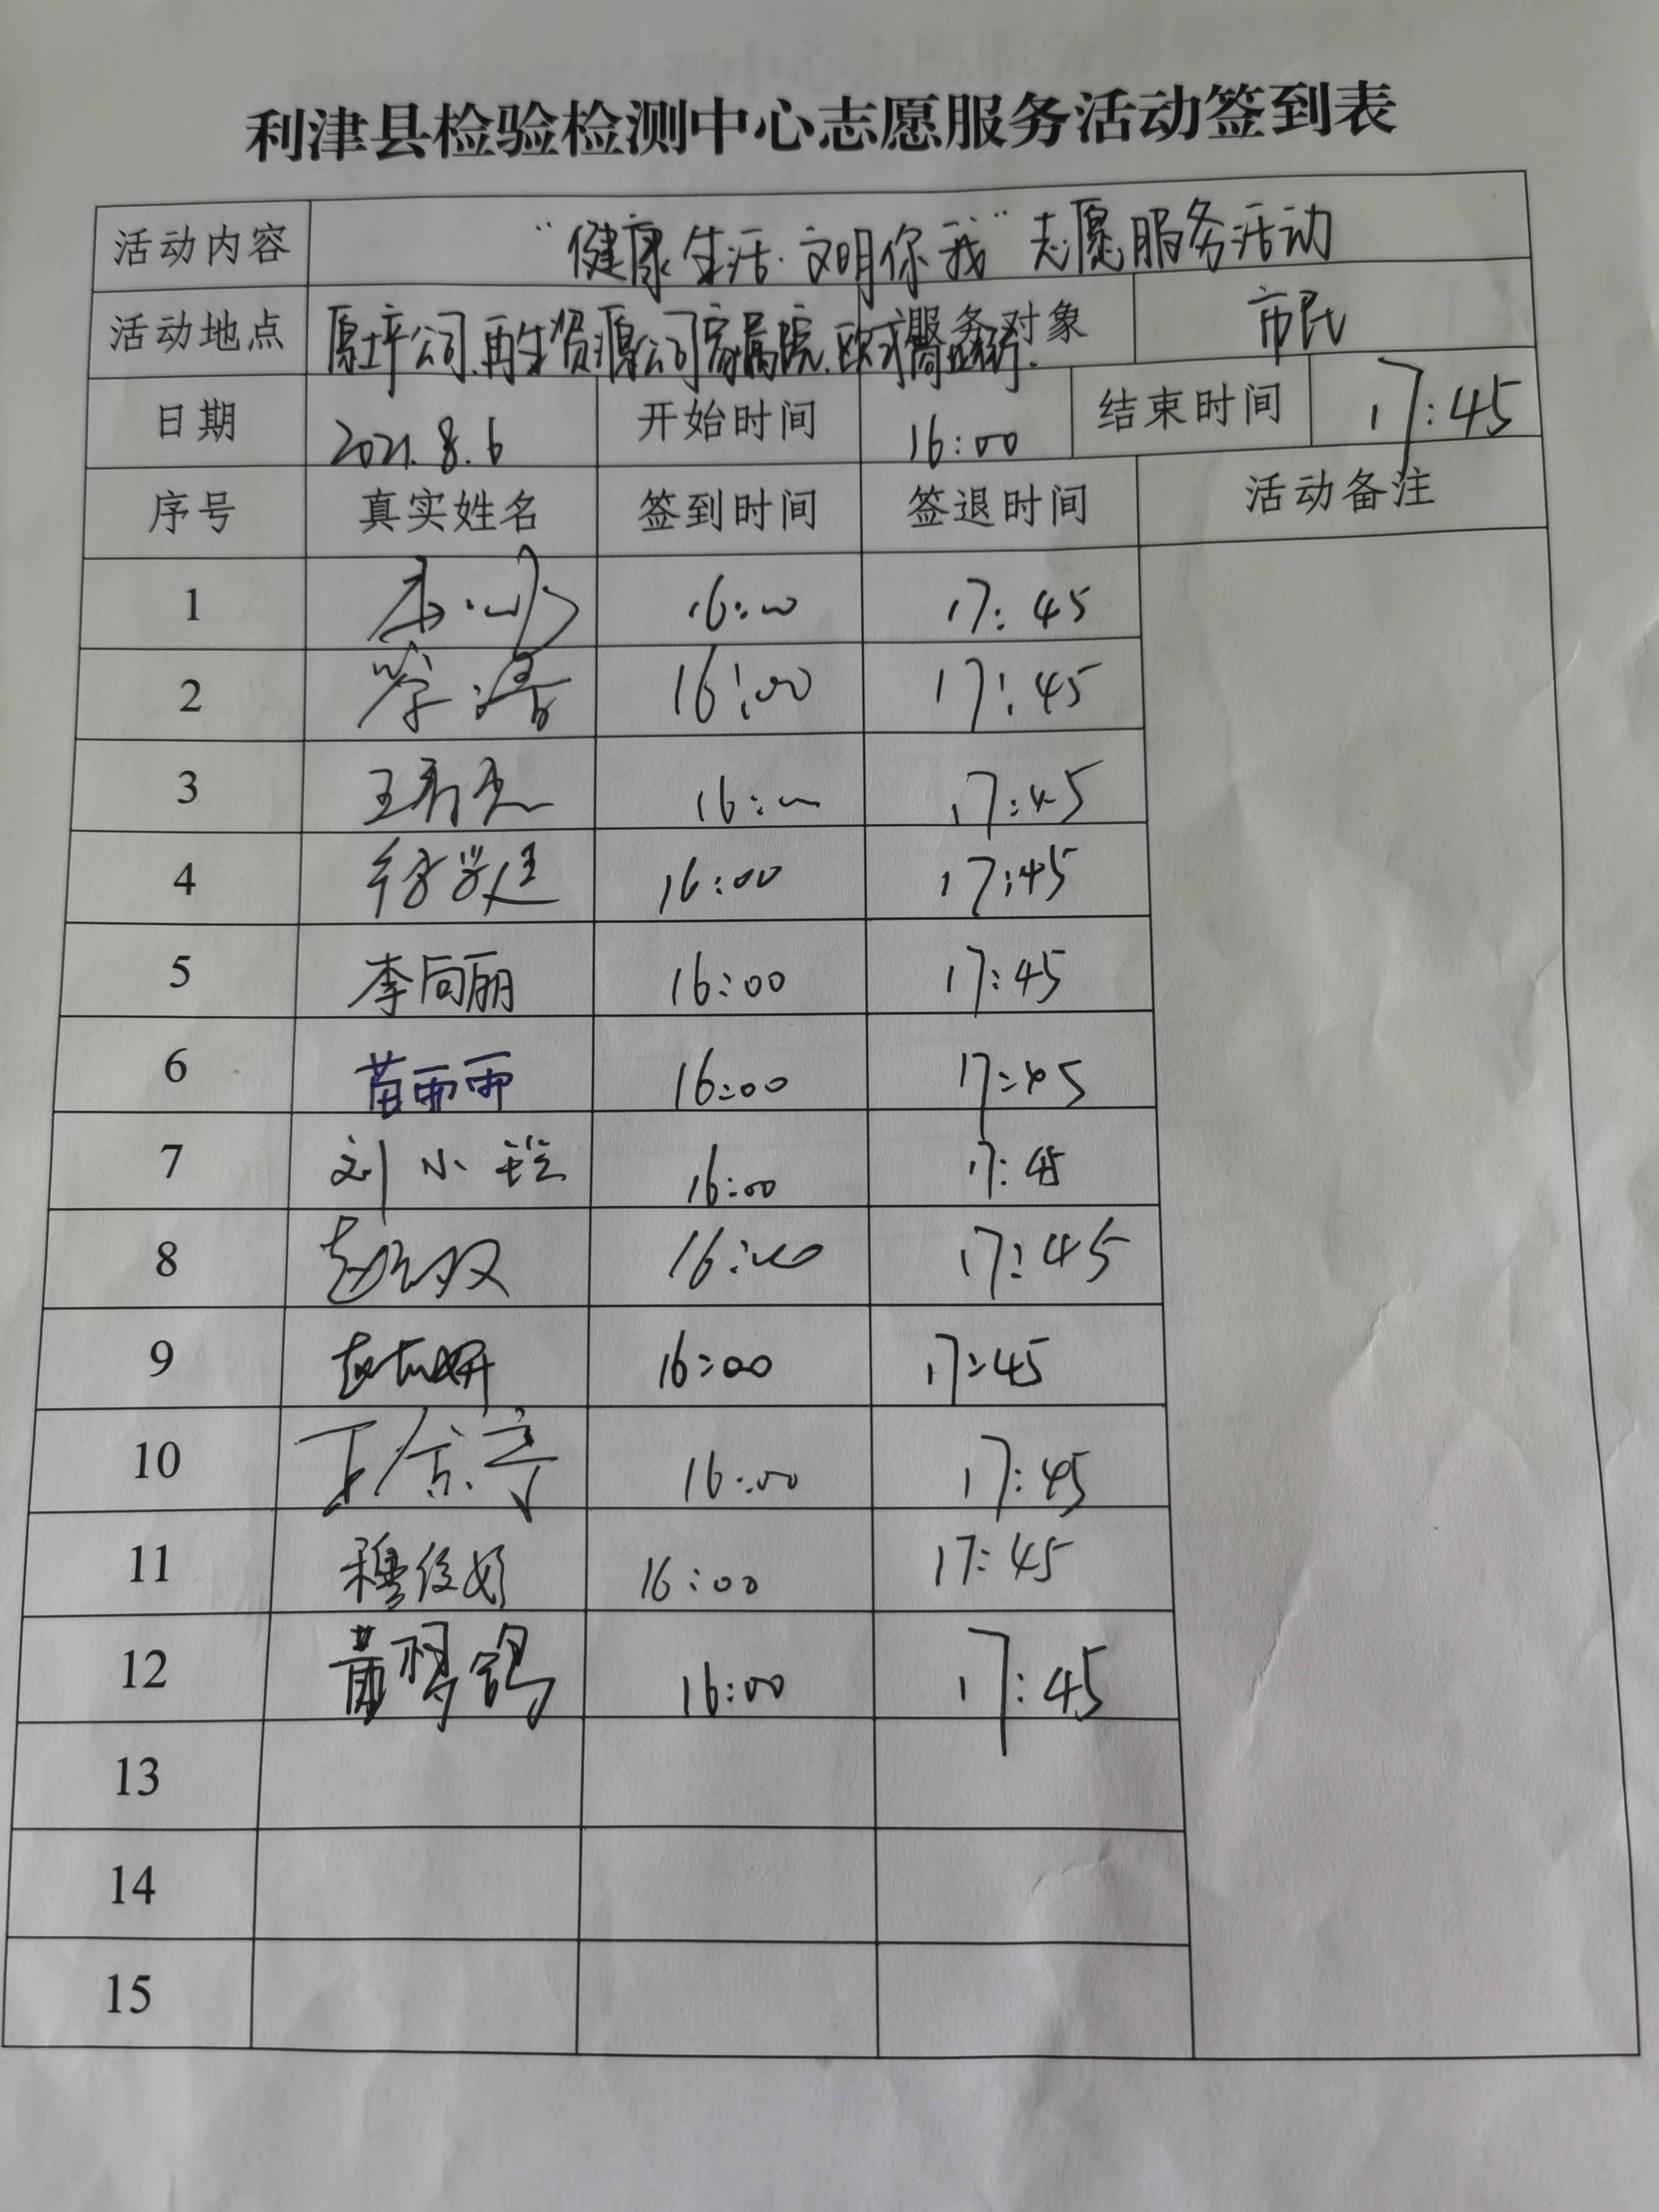 利津县检验检测中心志愿服务活动签到表
活动内容 “健康生活·文明你我”志愿服务活动
活动地点 原土产公司.再生资源公司家属院. 服务对象 市民
日期 2021.8.6 开始时间 16:00 结束时间 17:45
序号 真实姓名 签到时间 签退时间 活动备注
1 16:00 17:45
2 16:00 17:45
3 王 16:00 17:45
4 徐学廷 16:00 17:45
5 李向丽 16:00 17:45
6 苗雨雨 16:00 17:45
7 刘小 16:00 17:45
8 赵 双 16:00 17:45
9 赵 妍 16:00 17:45
10 16:00 17:45
11 穆俊好 16:00 17:45
12 黄 鸽 16:00 17:45
13
14
15